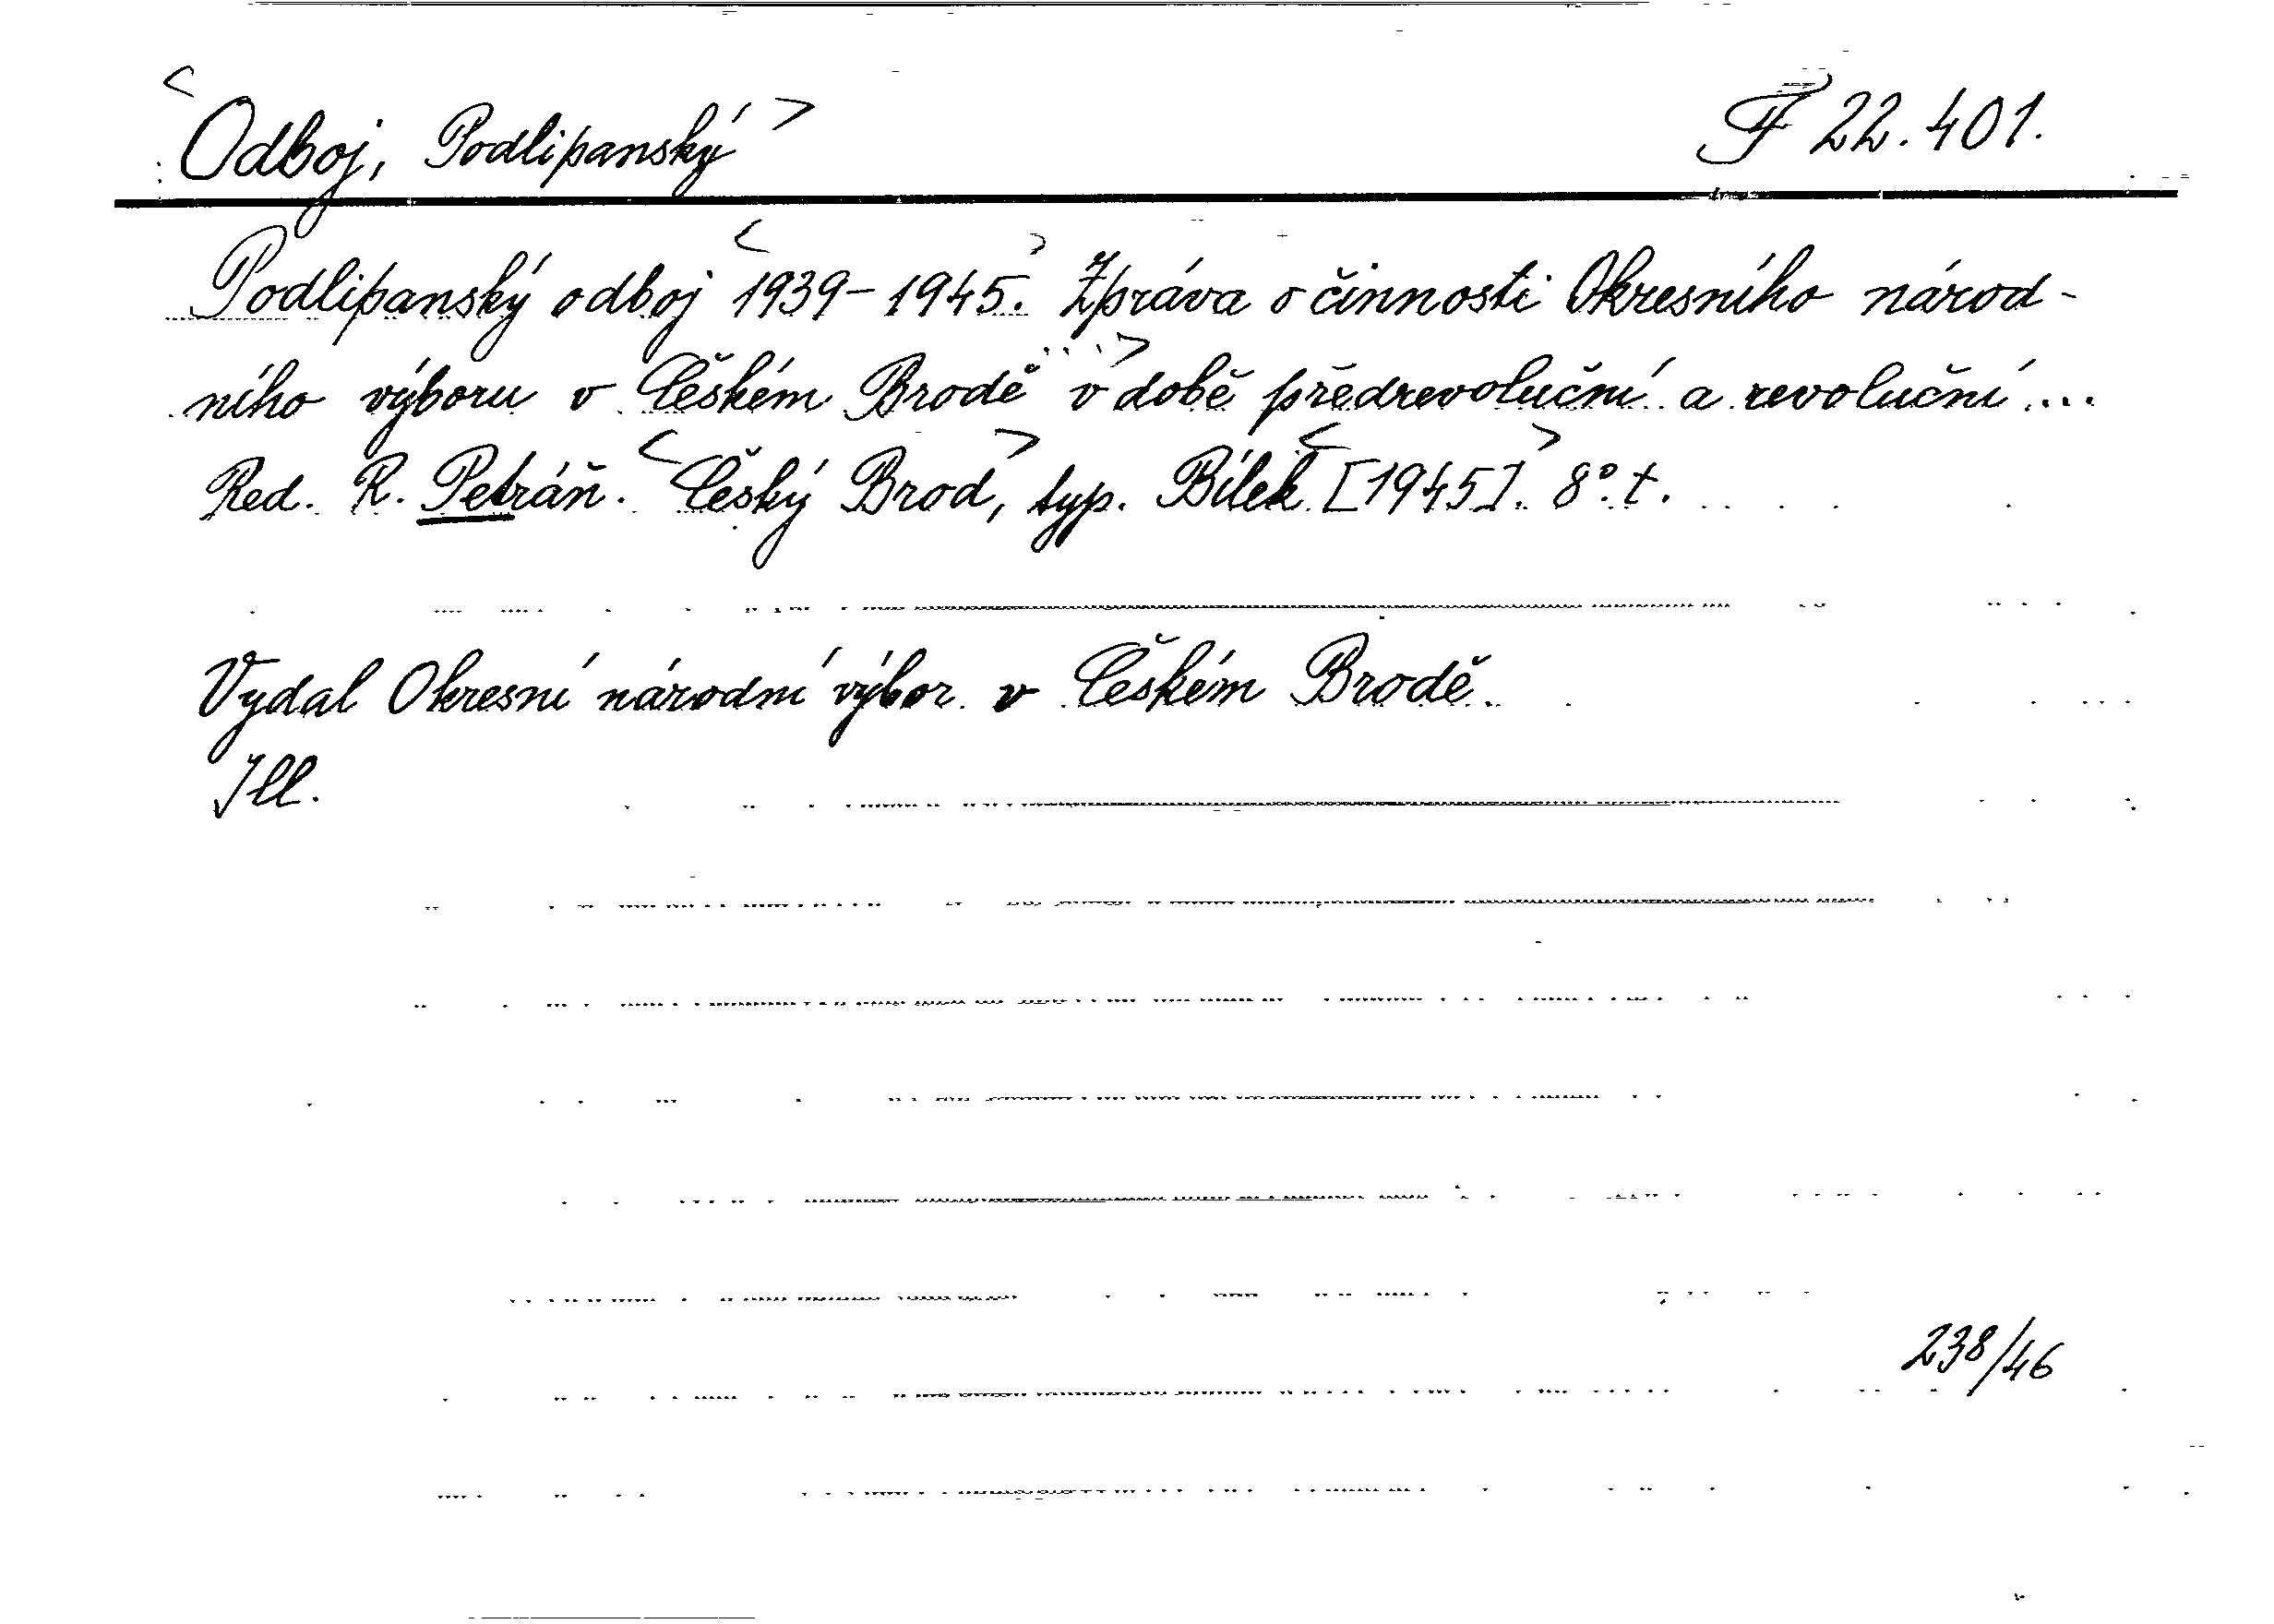 <Odboj, Podlipanský> F 22.401.
Podlipanský odboj <1939-1945.> Zpráva o činnosti Okresního národ-
ního výboru v Českém Brodě ...> v době předrevoluční a revoluční ...
Red. R. Petráň. <Český Brod>, typ. Bílek <[1945].> 8°. t.
Vydal Okresní národní výbor v Českém Brodě.
Ill.
238/46